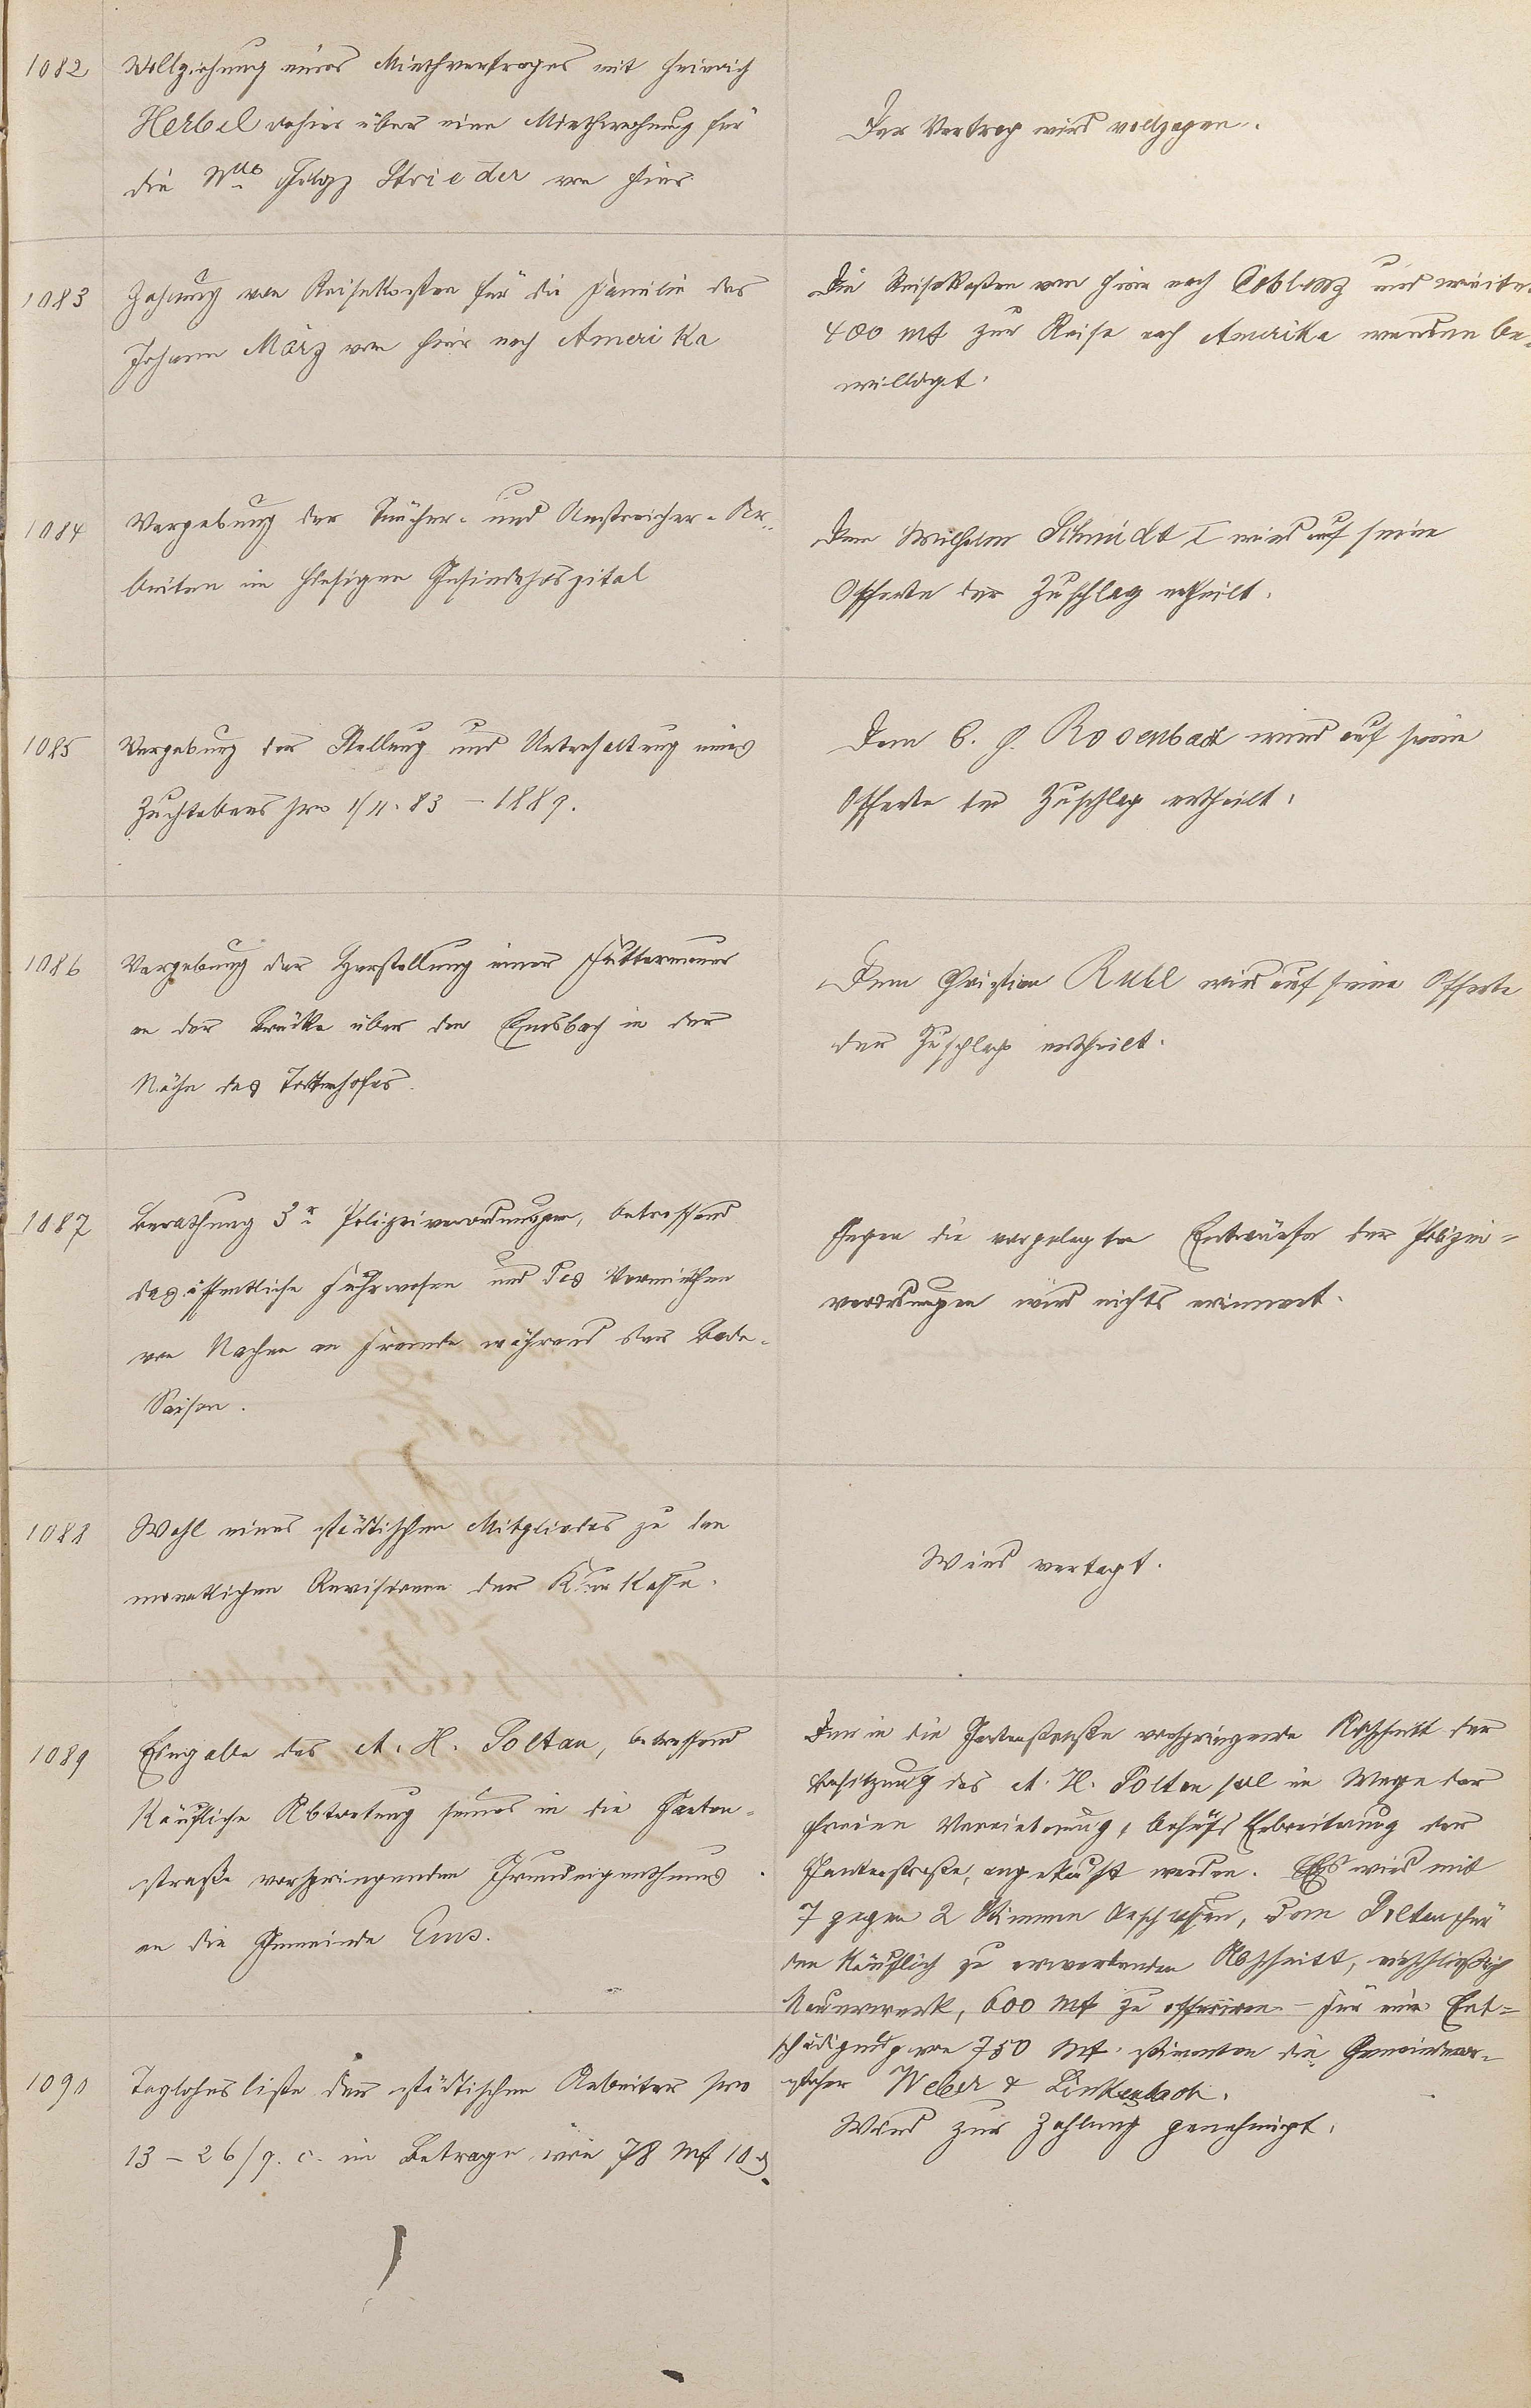 1082
Vollziehung eines Miethvertrages mit Heinrich
Herbel dahier über eine Miethwohnung für
die Wwe Philipp Strieder von hier
Der Vertrag wird vollzogen.
1083
Zahlung von Reisekosten für die Familie des
Johann März von hier nach Amerika
Die Reisekosten von hier nach Coblenz und weitere
400 Mk zur Reise nach Amerika werden be-
willigt.
1084
Vergebung der Tüncher- und Anstreicher-Ar-
beiten im hiesigen Gesindehospital
Dem Wilhelm Schmidt I wird auf seine
Offerte der Zuschlag ertheilt.
1085
Vergebung der Stellung und Unterhaltung eines
Zuchtebers pro 1/4. 83 - 1889.
Dem C. H. Rosenbach wird auf seine
Offerte der Zuschlag ertheilt.
1086
Vergebung der Herstellung einer Futtermauer
an der Brücke über den Emsbach in der
Nähe des Totenhofes.
Dem Christian Ruhl wird auf seine Offerte
der Zuschlag ertheilt.
1087
Berathung 3r Polizeiverordnungen, betreffend
das öffentliche Fuhrwesen und das Vermiethen
von Nachen an Fremde während der Bade-
Saison.
Gegen die vorgelegten Entwürfe der Polizei-
verordnungen wird nichts erinnert.
1088
Wahl eines städtischen Mitgliedes zu den
monatlichen Revisionen der Kurkasse.
Wird vertagt.
1089
Eingabe des A. H. Soltau, betreffend
käufliche Abtretung seines in die Garten-
straße vorspringenden Grundeigenthums
an die Gemeinde Ems.
Der in die Gartenstraße vorspringende Abschnitt der
Besitzung des A. H. Soltau soll im Wege der
freien Vereinbarung, behufs Erbreiterung der
Gartenstraße, angekauft werden. Es wird mit
7 gegen 2 Stimmen beschlossen, dem Soltau für
den käuflich zu erwerbenden Abschnitt, einschließlich
Mauerwerk, 600 Mk zu offeriren. - Für eine Ent-
schädigung von 750 Mk. stimmten die Gemeindevor-
steher Weber & Linkenbach.
1090
Taglohnsliste der städtischen Arbeiter pro
13 - 26/9. c. im Betrage von 78 Mk 10 ₰
Wird zur Zahlung genehmigt.